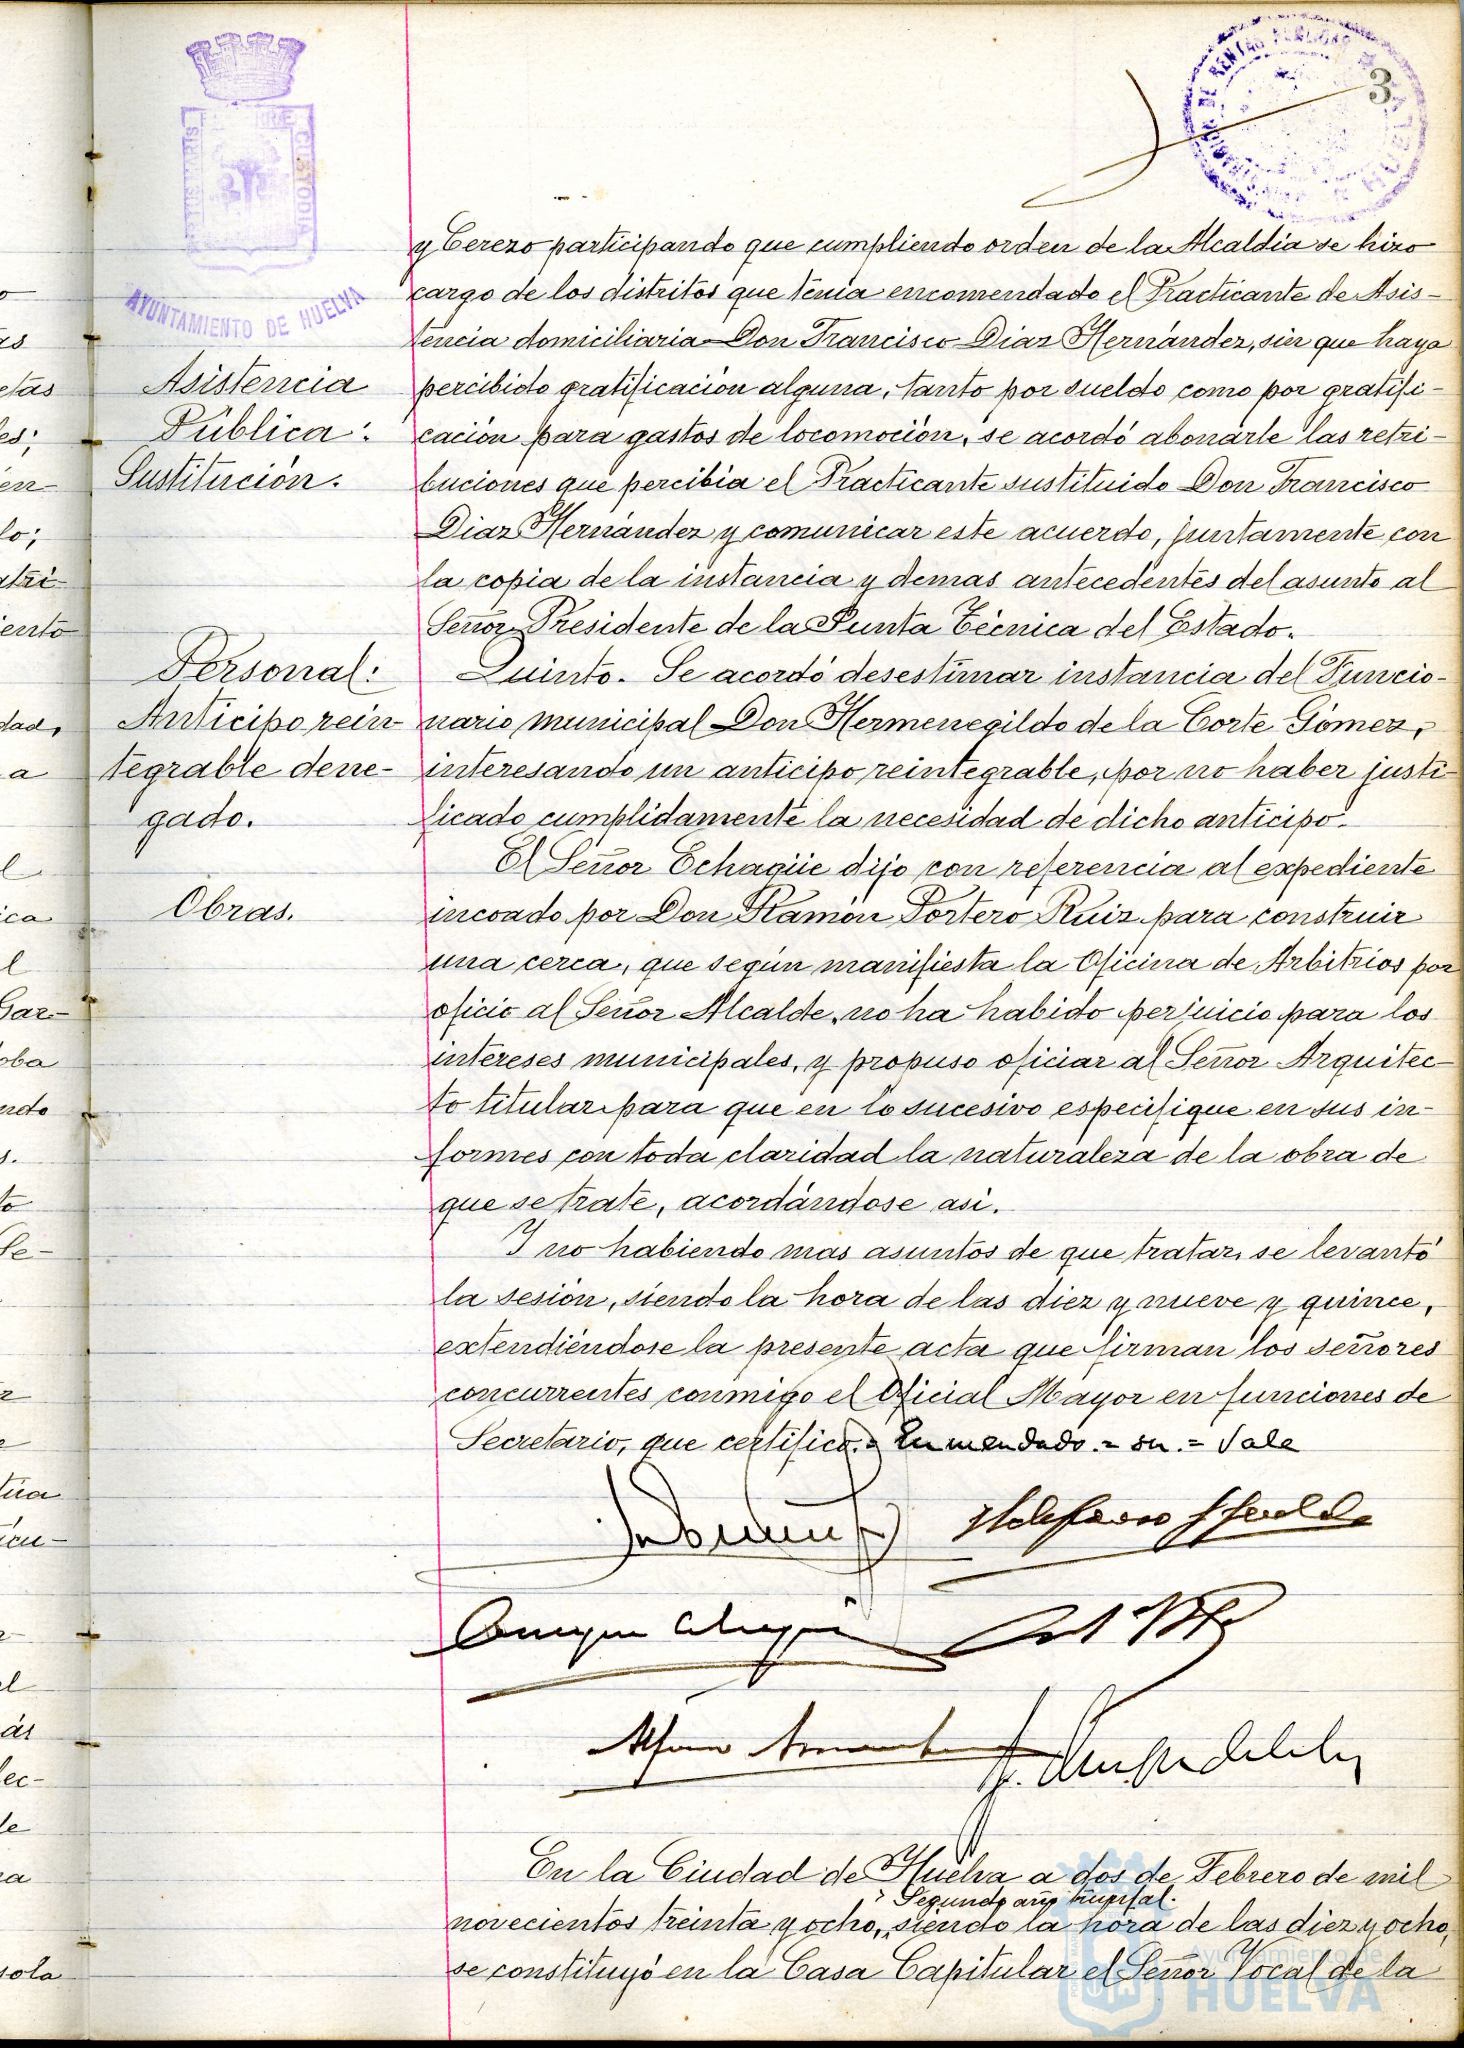 3
PORTUS MARIS ET TERRÆ CUSTODIA
AYUNTAMIENTO DE HUELVA
DE RENTAS PUBLICAS
HUELVA
y Cerezo participando que cumpliendo orden de la Alcaldia se hizo
cargo de los distritos que tenia encomendado el Practicante de Asis-
tencia domiciliaria Don Francisco Diaz Hernández, sin que haya
Asistencia
percibido gratificación alguna, tanto por sueldo como por gratifi-
Pública:
cación para gastos de locomoción, se acordó abonarle las retri-
Sustitución.
buciones que percibia el Practicante sustituido Don Francisco
Diaz Hernández y comunicar este acuerdo, juntamente con
la copia de la instancia y demas antecedentes del asunto al
Señor Presidente de la Junta Técnica del Estado.
Personal:
Quinto. Se acordó desestimar instancia del Funcio-
Anticipo rein-
nario municipal Don Hermenegildo de la Corte Gómez,
tegrable dene-
interesando un anticipo reintegrable, por no haber justi-
gado.
ficado cumplidamente la necesidad de dicho anticipo.
El Señor Echagüe dijo con referencia al expediente
Obras.
incoado por Don Ramón Portero Ruiz para construir
una cerca, que según manifiesta la Oficina de Arbitrios por
oficio al Señor Alcalde, no ha habido perjuicio para los
intereses municipales, y propuso oficiar al Señor Arquitec-
to titular para que en lo sucesivo especifique en sus in-
formes con toda claridad la naturaleza de la obra de
que se trate, acordándose asi.
Y no habiendo mas asuntos de que tratar, se levantó
la sesión, siendo la hora de las diez y nueve y quince,
extendiéndose la presente acta que firman los señores
concurrentes conmigo el Oficial Mayor en funciones de
Secretario, que certifico. = Enmendado. = on. = Vale
En la Ciudad de Huelva a dos de Febrero de mil
Segundo año triunfal.
novecientos treinta y ocho, siendo la hora de las diez y ocho,
se constituyó en la Casa Capitular el Señor Vocal de la
Ayuntamiento de
HUELVA